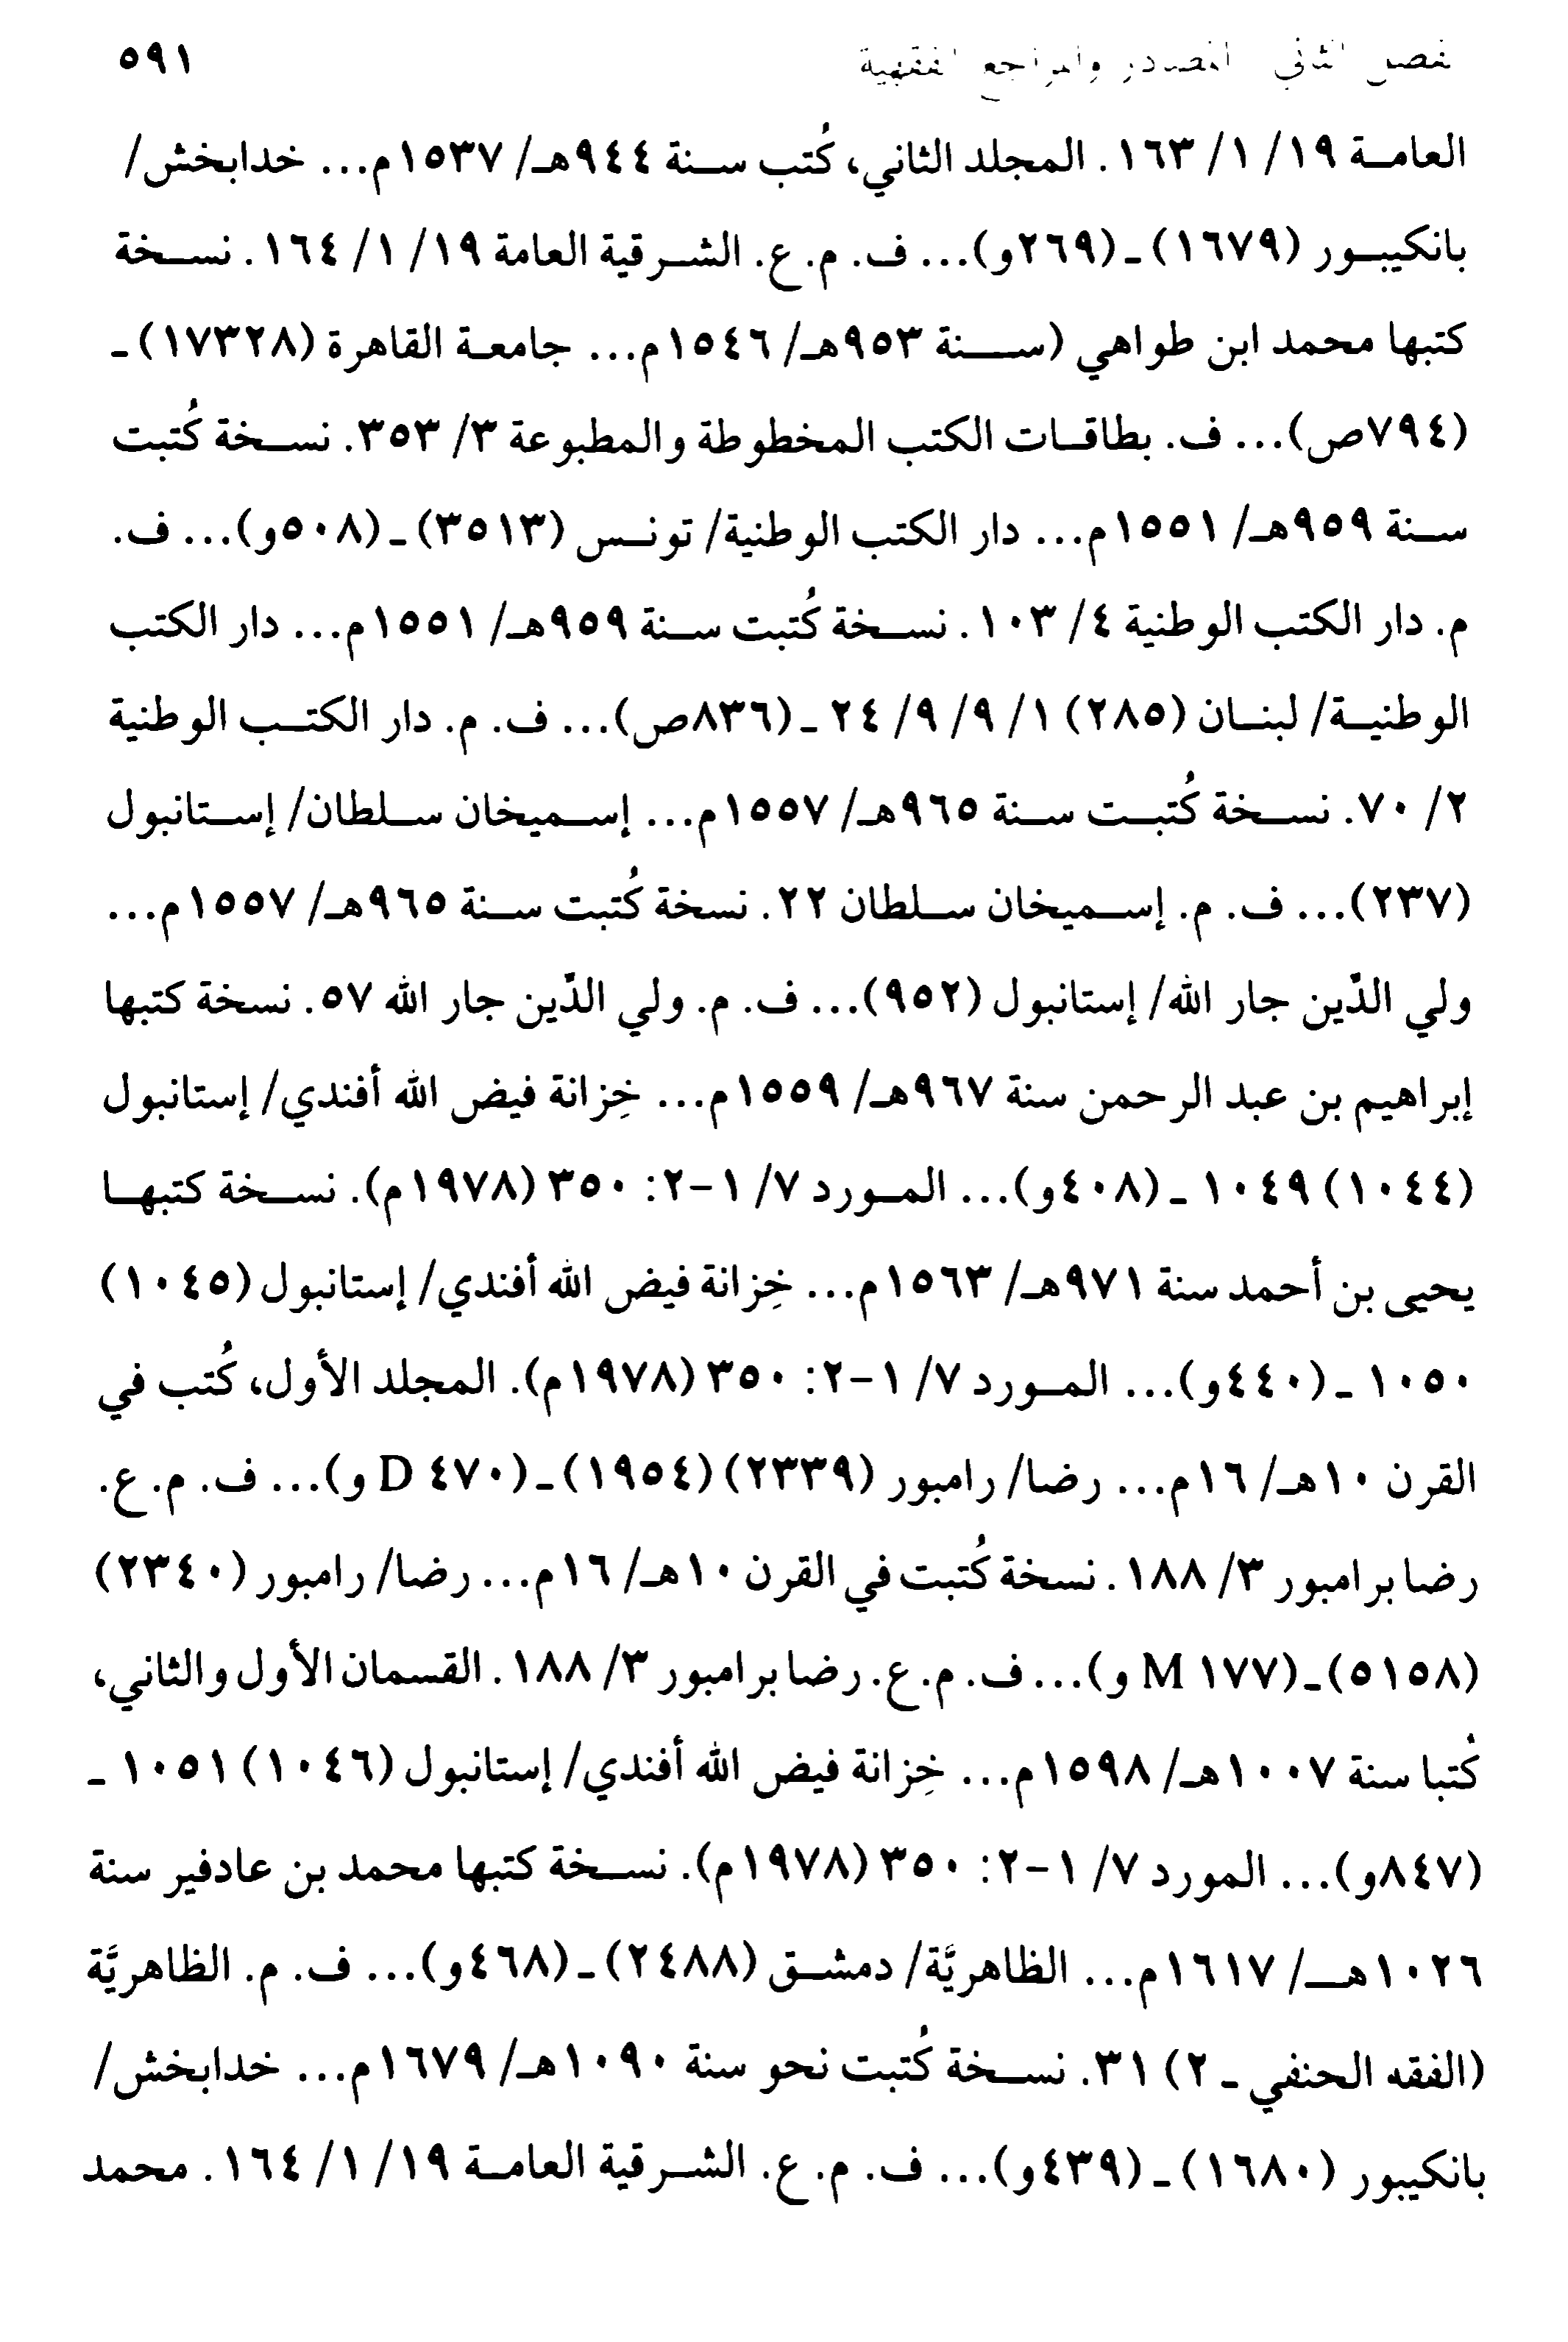 الفصل الثاني المصادر والمراجع الفقهية ٥٩١
العامة ١٩/ ١/ ١٦٣. المجلد الثاني، كُتب سنة ٩٤٤هـ/ ١٥٣٧م... خدابخش/
بانكيبور (١٦٧٩) ـ (٢٦٩و)... ف. م. ع. الشرقية العامة ١٩/ ١/ ١٦٤. نسخة
كتبها محمد ابن طواهي (سنة ٩٥٣هـ/ ١٥٤٦م... جامعة القاهرة (١٧٣٢٨) ـ
(٧٩٤ص)... ف. بطاقات الكتب المخطوطة والمطبوعة ٣/ ٣٥٣. نسخة كُتبت
سنة ٩٥٩هـ/ ١٥٥١م... دار الكتب الوطنية/ تونس (٣٥١٣) ـ (٥٠٨و)... ف.
م. دار الكتب الوطنية ٤/ ١٠٣. نسخة كُتبت سنة ٩٥٩هـ/ ١٥٥١م... دار الكتب
الوطنية/ لبنان (٢٨٥) ١/ ٩/ ٩/ ٢٤ ـ (٨٣٦ص)... ف. م. دار الكتب الوطنية
٢/ ٧٠. نسخة كُتبت سنة ٩٦٥هـ/ ١٥٥٧م... إسميخان سلطان/ إستانبول
(٢٣٧)... ف. م. إسميخان سلطان ٢٢. نسخة كُتبت سنة ٩٦٥هـ/ ١٥٥٧م...
ولي الدّين جار الله/ إستانبول (٩٥٢)... ف. م. ولي الدّين جار الله ٥٧. نسخة كتبها
إبراهيم بن عبد الرحمن سنة ٩٦٧هـ/ ١٥٥٩م... خِزانة فيض الله أفندي/ إستانبول
(١٠٤٤) ١٠٤٩ ـ (٤٠٨و)... المورد ٧/ ١-٢: ٣٥٠ (١٩٧٨م). نسخة كتبها
يحيى بن أحمد سنة ٩٧١هـ/ ١٥٦٣م... خِزانة فيض الله أفندي/ إستانبول (١٠٤٥)
١٠٥٠ ـ (٤٤٠و)... المورد ٧/ ١-٢: ٣٥٠ (١٩٧٨م). المجلد الأول، كُتب في
القرن ١٠هـ/ ١٦م... رضا/ رامبور (٢٣٣٩) (١٩٥٤) ـ (٤٧٠ D و)... ف. م. ع.
رضا برامبور ٣/ ١٨٨. نسخة كُتبت في القرن ١٠هـ/ ١٦م... رضا/ رامبور (٢٣٤٠)
(٥١٥٨) ـ (١٧٧ M و)... ف. م. ع. رضا برامبور ٣/ ١٨٨. القسمان الأول والثاني،
كُتبا سنة ١٠٠٧هـ/ ١٥٩٨م... خِزانة فيض الله أفندي/ إستانبول (١٠٤٦) ١٠٥١ ـ
(٨٤٧و)... المورد ٧/ ١-٢: ٣٥٠ (١٩٧٨م). نسخة كتبها محمد بن عادفير سنة
١٠٢٦هـ/ ١٦١٧م... الظاهريَّة/ دمشق (٢٤٨٨) ـ (٤٦٨و)... ف. م. الظاهريَّة
(الفقه الحنفي ـ ٢) ٣١. نسخة كُتبت نحو سنة ١٠٩٠هـ/ ١٦٧٩م... خدابخش/
بانكيبور (١٦٨٠) ـ (٤٣٩و)... ف. م. ع. الشرقية العامة ١٩/ ١/ ١٦٤. محمد